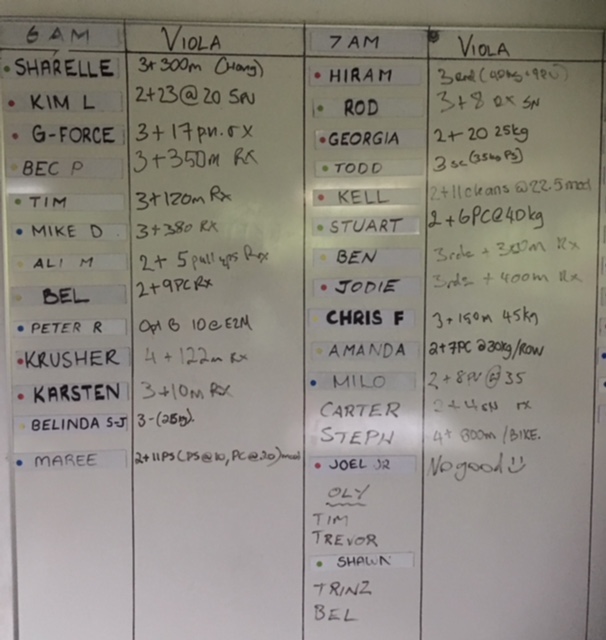 6 AM VIOLA
SHARELLE 3+300m (Hang)
KIM L 2+23@20 SN
G-FORCE 3+17 pn. rx
BEC P 3+350m RX
TIM 3+120m Rx
MIKE D 3+380 RX
ALI M 2+5 pull ups Rx
BEL 2+9PC Rx
PETER R Opt B 10@E2M
KRUSHER 4+122m Rx
KARSTEN 3+10m RX
BELINDA S-J 3-(25kg).
MAREE 2+11PS (PS@10, PC@20) mod
7 AM VIOLA
HIRAM
ROD 3+8 RX SN
GEORGIA 2+20 25kg
TODD 3 sc (35kg PS)
KELL 2+11cleans @22.5 mod
STUART 2+6PC@40kg
BEN 3rds + 300m Rx
JODIE 3rds + 400m Rx
CHRIS F 3+150m 45kg
AMANDA 2+7PC @30kg/ROW
MILO 2+8PU @35
CARTER 2+4SN rx
STEPH 4+ 800m /BIKE.
JOEL JR No good
OLY
TIM
TREVOR
SHAWN
TRINZ
BEL